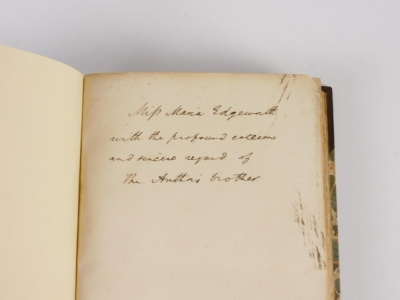 Miss Maria Edgeworth
with the profound esteem
and sincere regard of
The Author's brother